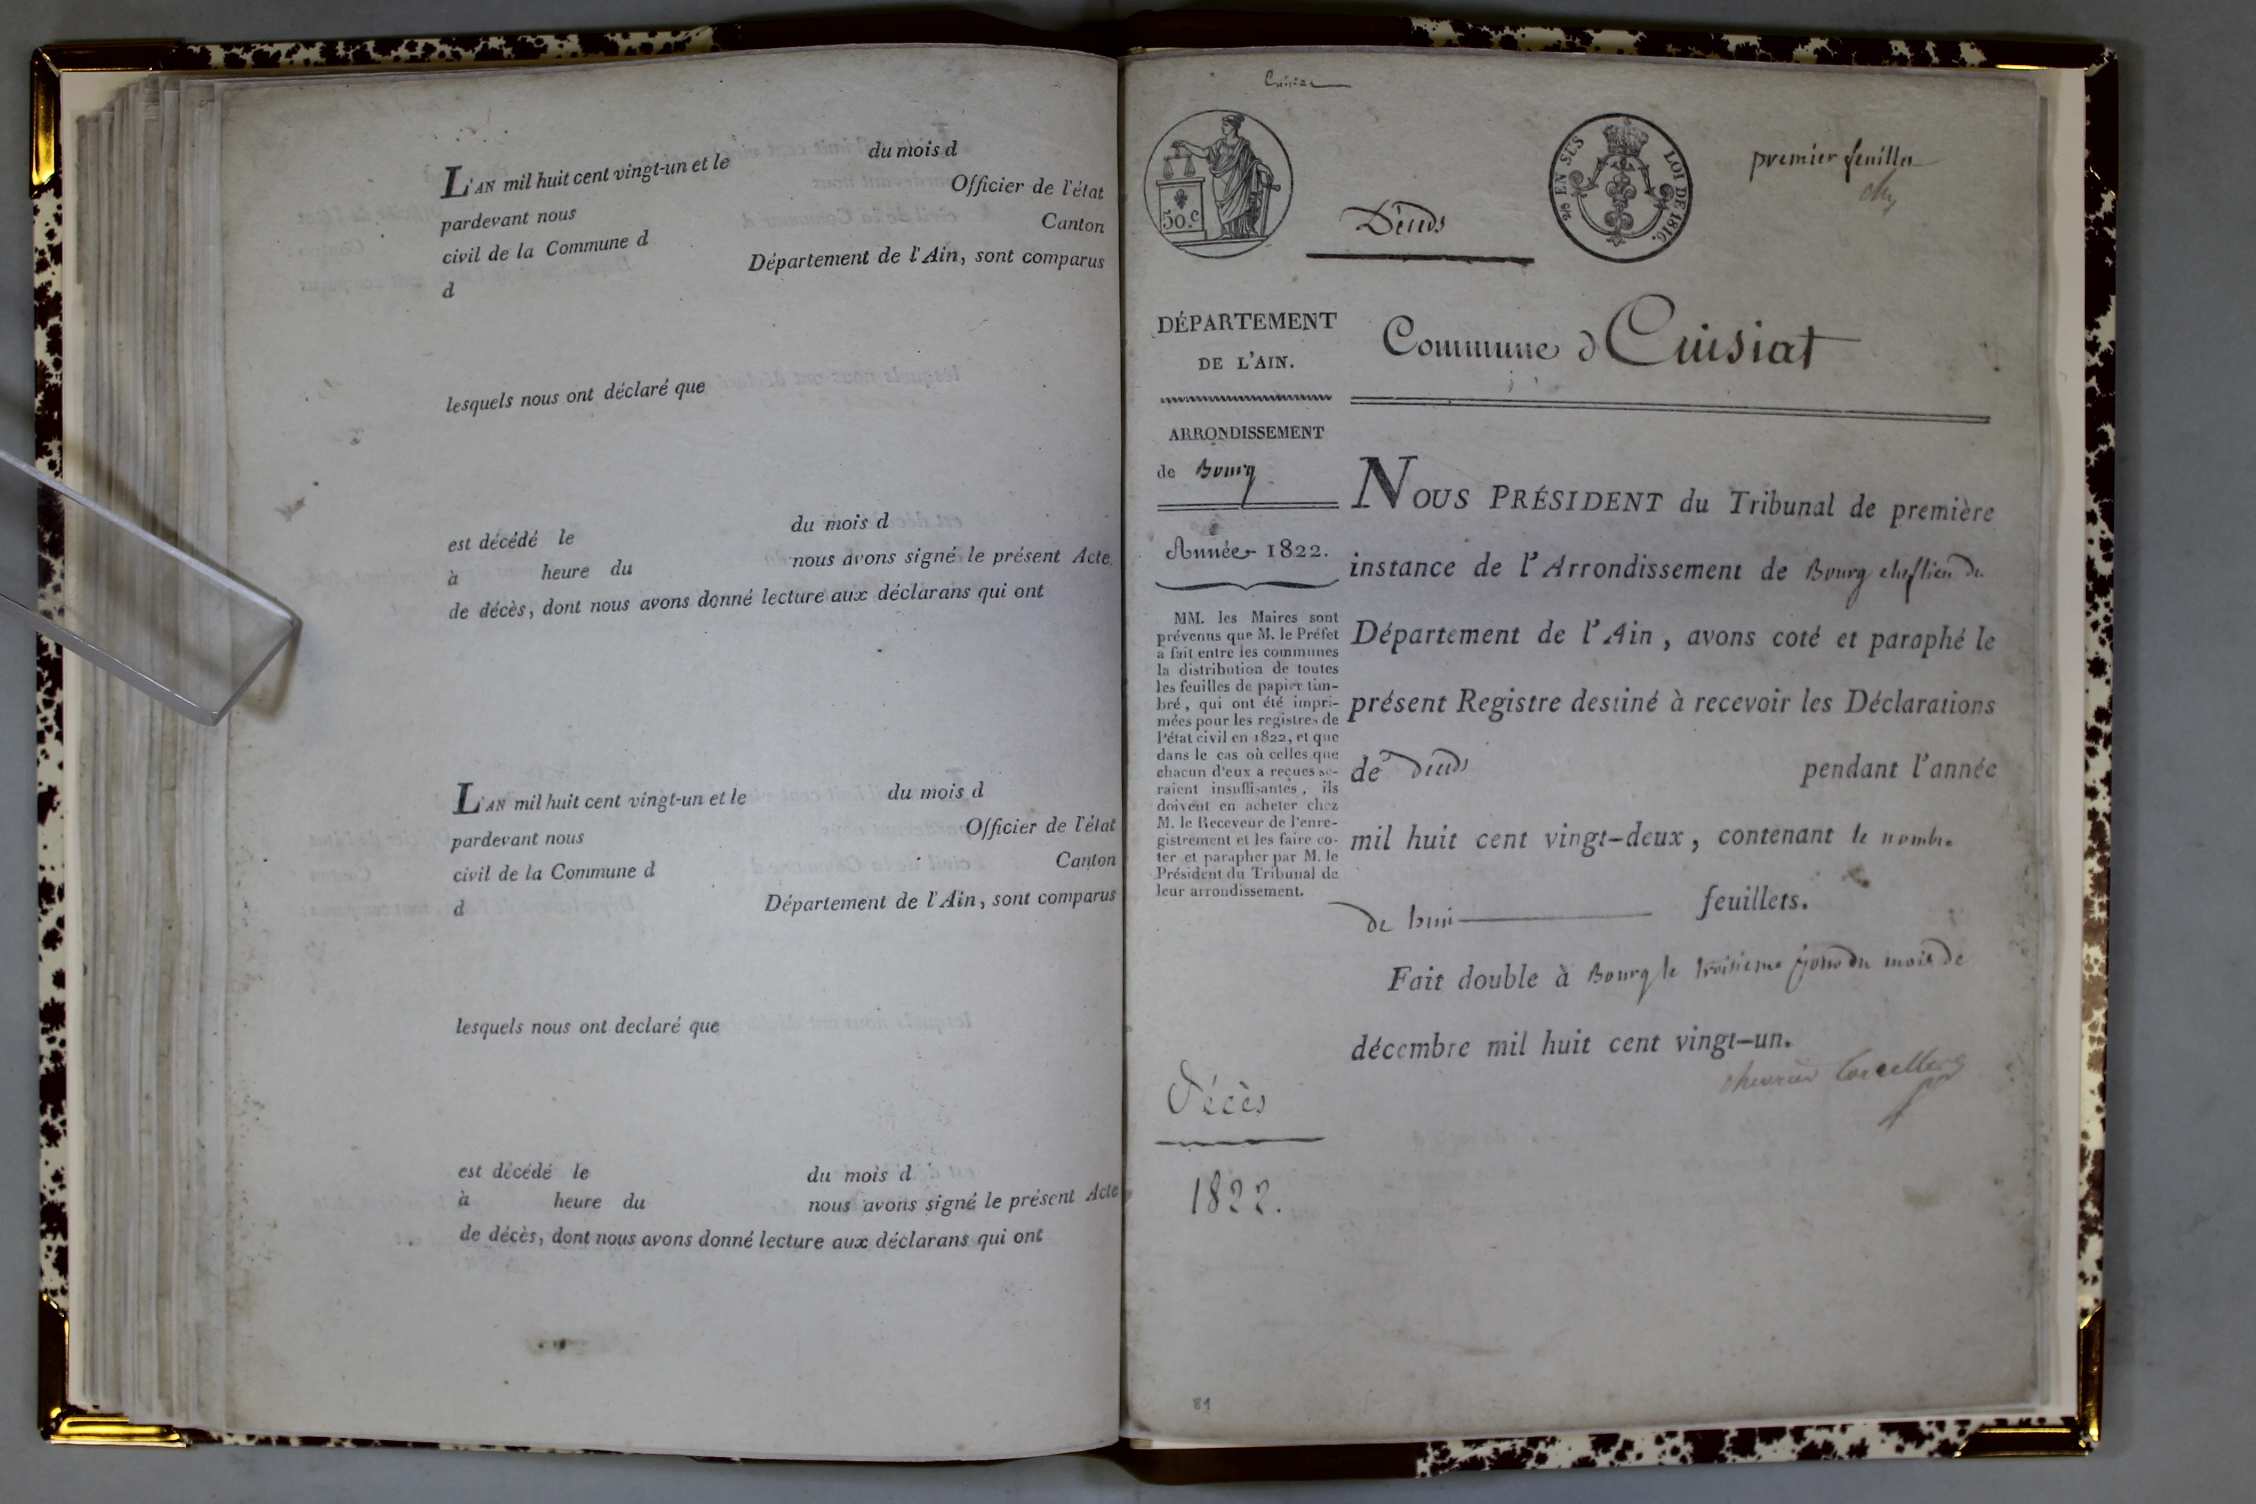 L'AN mil huit cent vingt-un et le du mois d
pardevant nous Officier de l'état
civil de la Commune d Canton
d Département de l'Ain, sont comparus
lesquels nous ont déclaré que
est décédé le du mois d
à heure du nous avons signé le présent Acte
de décès, dont nous avons donné lecture aux déclarans qui ont
L'AN mil huit cent vingt-un et le du mois d
pardevant nous Officier de l'état
civil de la Commune d Canton
d Département de l'Ain, sont comparus
lesquels nous ont declaré que
est décédé le du mois d
à heure du nous avons signé le présent Acte
de décès, dont nous avons donné lecture aux déclarans qui ont
Cuisiat
50.c
Décès
26 EN SUS LOI DE 1816.
premier feuillet
DÉPARTEMENT
DE L'AIN.
Commune d Cuisiat
ARRONDISSEMENT
de Bourg
Année 1822.
MM. les Maires sont
prévenus que M. le Préfet
a fait entre les communes
la distribution de toutes
les feuilles de papier tim-
bré, qui ont été impri-
mées pour les registres de
l'état civil en 1822, et que
dans le cas où celles que
chacun d'eux a reçues se-
raient insuffisantes, ils
doivent en acheter chez
M. le Receveur de l'enre-
gistrement et les faire co-
ter et parapher par M. le
Président du Tribunal de
leur arrondissement.
NOUS PRÉSIDENT du Tribunal de première
instance de l'Arrondissement de Bourg cheflieu du
Département de l'Ain, avons coté et paraphé le
présent Registre destiné à recevoir les Déclarations
de décès pendant l'année
mil huit cent vingt-deux, contenant le nombre
de huit feuillets.
Fait double à Bourg le troisieme jour du mois de
décembre mil huit cent vingt-un.
Décès
1822.
81